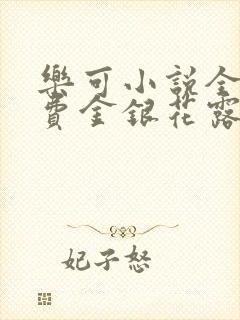 樂可小說全
費金銀花露
妃子怒